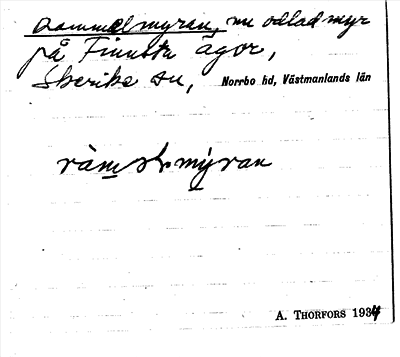 myran, nu odlad myr
på Finnsta ägor,
Skerike sn, Norrbo hd, Västmanlands län
myran
A. THORFORS 1934